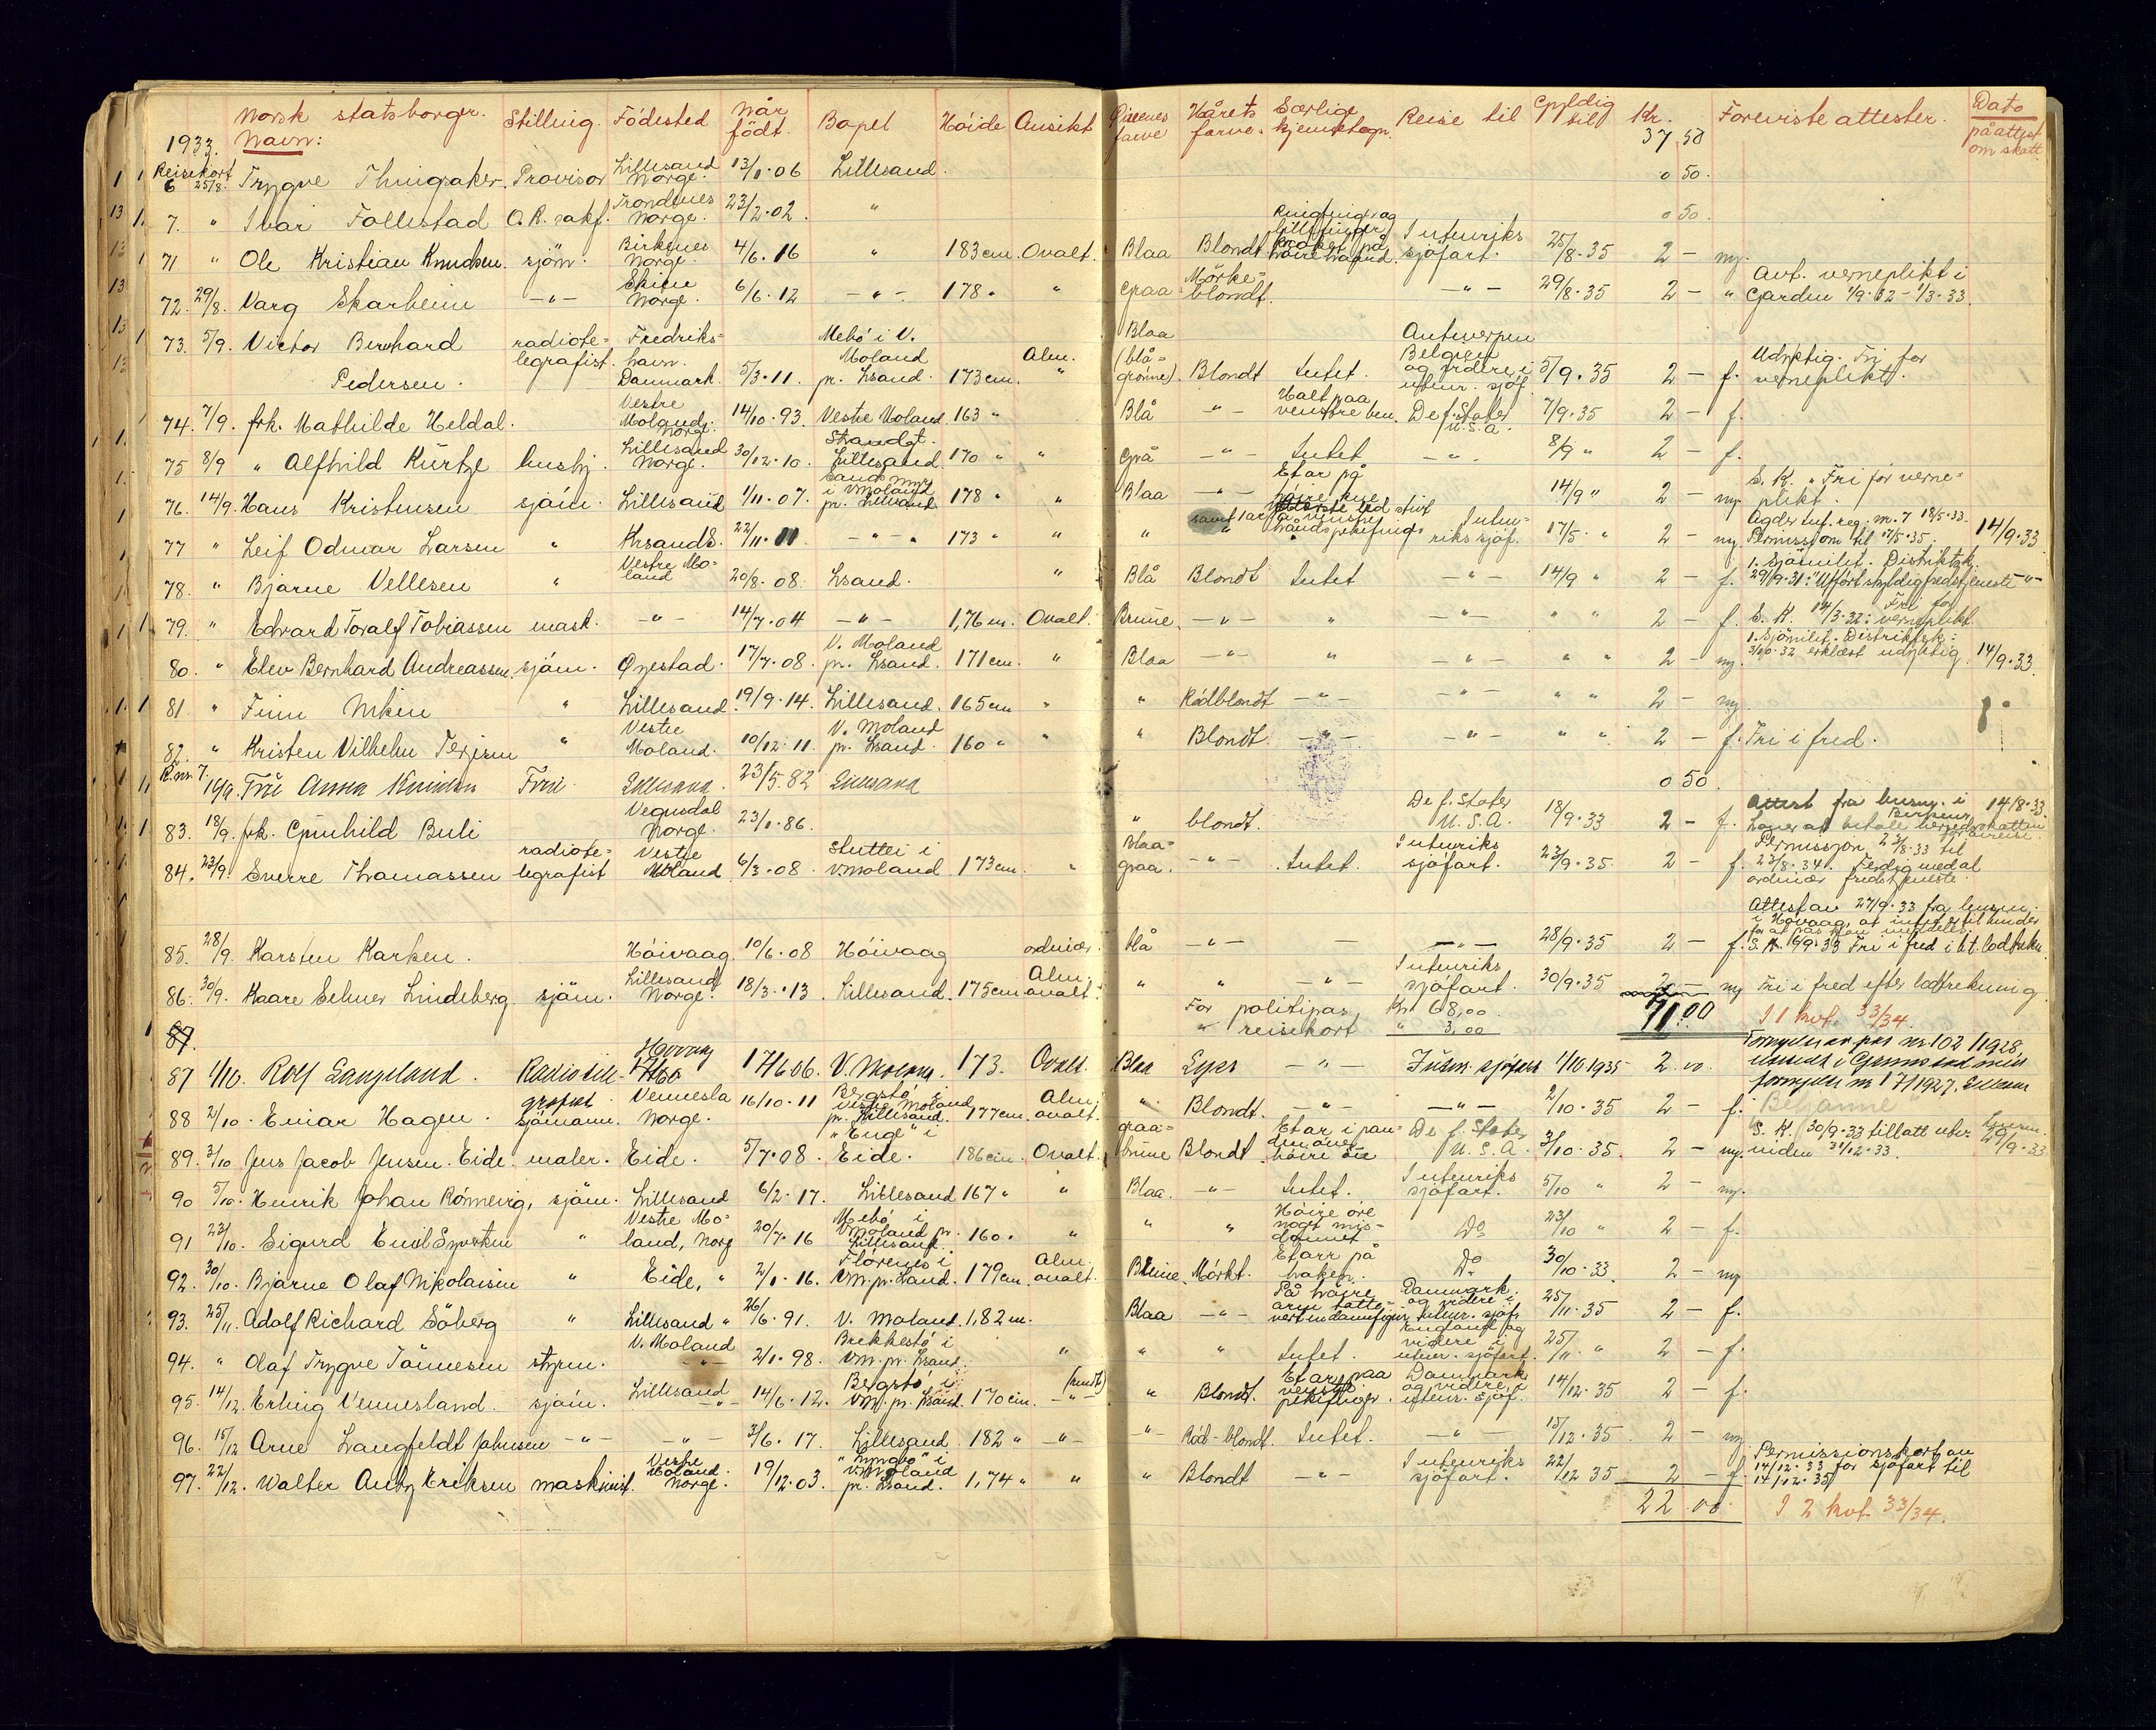 Norsk statsborger. Stilling. Födested Når födt. Bopel Höide Ansikt Öinenes farve Hårets farve. Særlige kjennetegn. Reise til Gyldig til Kr. Foreviste attester. Dato på attest om skatt
1933. Navn: 37 50
Reisekort 6 25/8. Trygve Provisor Lillesand Norge. 13/1.06 Lillesand. 0 50.
7. " Ivar Follestad O.R. sakf. Trondenes Norge. 23/2.02. " 0 50.
71 " Ole Kristian Knudsen. sjöm. Birkenes Norge. 4/6.16 " 183 cm. Ovalt. Blaa Blondt Ringfinger og lillefinger på höire haand. Utenriks sjöfart. 25/8.35 2 – ny.
72. 29/8. Varg Skarheim –"– Skien Norge. 6/6.12 –"– 178 " " Graa Mörke=blondt. –"– 29/8.35 2 – " Avt. verneplikt i Garden 1/9.32 – 1/3.33
73. 5/9. Victor Bernhard Pedersen. radiote=legrafist. Fredriks=havn. Danmark. 5/3.11. Mebö i V. Moland pr. Lsand. 173 cm. Alm. " Blaa (blå=grönne). Blondt Intet. Antwerpen Belgien og videre i utenr. sjöf. 5/9.35 2 – f. Udyktig. Fri for verneplikt.
74. 7/9. frk. Mathilde Heldal. Vestre Moland. Norge. 14/10.93. Vestre Moland 163 " Blå –"– Halt paa venstre ben. De f. Stater U.S.A. 7/9.35 2 – f.
75 8/9 " Alfhild Kürtze hushj. Lillesand Norge. 30/12.10. Strandgt. Lillesand. 170 " " Grå –"– Intet –"– 8/9 " 2 – f.
76. 14/9. Hans Kristensen sjöm. Lillesand 1/11.07. i V. Moland pr. Lillesand. 178 " " Blaa –"– Et ar på höire 14/9 " 2 – ny. S. K. " Fri for verne=plikt.
77 " Leif Odmar Larsen " Krsand S. 22/11.11 –"– 173 " " " " samt 1 ar på venstre hånds pekefinger Uten=riks sjöf. 17/5. " 2 – ny. Agder Inf. reg. nr. 7 18/5.33. Permisjon til 17/5.35. 14/9.33
78. " Bjarne Vellesen " Vestre Mo=land 20/8.08. Lsand. " Blå Blondt Intet –"– 14/9 " 2 – f. 1. Sjömilit. Distriktsk. 29/9.31: Utfört skyldig fredstjeneste –"–
79. " Edvard Toralf Tobiassen mask. –"– 14/7.04 –"– 1,76 m. Ovalt. Brune. –"– " –"– " " 2 – f. S. K. 14/3.32: Fri for verneplikt.
80. " Elev Bernhard Andreassen. sjöm. Öyestad. 17/7.08. V. Moland pr. Lsand. 171 cm. " Blaa –"– " –"– " " 2 – ny. 1. Sjömilit. Distriktsk: 3/10.32 erklært udyktig. 14/9.33
81 " Finn " Lillesand. 19/9.14. Lillesand. 165 cm " " Rödblondt –"– –"– " " 2 – ny.
82. " Kristen Vilhelm Terjesen " Vestre Moland. 10/12.11. V. Moland pr. Lsand. 160 " " " Blondt. –"– –"– " " 2 – f. Fri i fred.
R. nr. 7. 16/9. Frü Anna Knudsen Frue. Lillesand. 23/5.82 Lillesand 0 50.
83. 18/9. frk. Gunhild Buli Vegusdal Norge. 23/1.86. " blondt. De f. Stater U.S.A. 18/9.33 2 – f. Attest fra lensm. i Birkenes 14/8.33.
84. 23/9. Sverre Thomassen radiote=legrafist Vestre Moland 6/3.08. i V. Moland. 173 cm. " Blaa=graa. –"– Intet. Utenriks sjöfart. 23/9.35 2 – f. Permisjon 23/8.33 til 23/8.34. Ferdig med al ordinær fredstjeneste.
85. 28/9. Karsten Karlsen. Höivaag. 10/6.08 Höivaag ordinær. blå –"– – –"– 28/9.35 2 – f. Attest av 27/9.33 fra lensm. i Hövaag, at intet er til hinder for at pas kan meddeles. S. K. 16/9.33 Fri i fred
86. 30/9. Kaare Selmer Lindeberg. sjöm. Lillesand Norge. 18/3.13. Lillesand. 175 cm Alm. ovalt. " " –"– Utenriks sjöfart. 30/9.35 2 – ny Fri i fred efter lodtrekning.
For politipas, Kr. 68,00
" reisekort " 3,00 71.00 I 1 kvt. 33/34.
87.
87 1/10. Rolf Langeland. Radiotele-grafist 17/6 06. V. Moland. 173. Ovalt. Blaa Lyst –"– Utenr. sjöfart 1/10 1935 2.00 Fornyelse av pas nr 102/1928
88 2/10. Einar Hagen. sjömann. Vennesla Norge. 16/10.11 Bergstö, Vestre Moland pr. Lillesand. 177 cm. Alm. ovalt. " Blondt. –"– –"– 2/10.35 2 – f.
89. 3/10 Jens Jacob Jensen. Eide. maler. Eide. 5/7.08. "Enge" i Eide. 186 cm. Ovalt. graa=brune Blondt. Et ar i pan=nen over höire öie De f. Stater U.S.A. 3/10.35. 2 – ny. S. K. 30/9.33 tillatt utr. inden 31/12.33.
90 5/10. Henrik Johan Rönnevig, sjöm. Lillesand 6/2.17. Lillesand 167 " " Blaa. –"– Intet. Utenriks sjöfart. 5/10 " 2 – ny.
91 23/10. Sigurd Emil Syvertsen " Vestre Mo=land, Norg 20/7.16 Mebö i V. Moland pr. Lillesand. 160. " " " Höire öre noget mis=dannet Do 23/10 " 2 – f.
92. 30/10. Bjarne Olaf Nikolaisen " Eide, " 2/1.16. Flörenes i Vm. pr. Lsand. 179 cm. Alm. ovalt. Brune. Mörkt. Et arr på haken. Do 30/10.33. 2 – ny
93. 25/11. Adolf Richard Söberg " Lillesand " 26/6.91. V. Moland. 1,82 m. Blaa –"– På höire arm tatto=vert en damefigur. Danmark og videre i utenr. sjöf. 25/11.35 2 – f.
94. " Olaf Trygve Tönnesen styrm. V. Moland –"– 2/1.98. Brekkestö i Vm. pr. Lsand. " " " Intet. England og videre i utenr. sjöfart. 25/11. " 2 – f.
95. 14/12. Erling Vennesland. sjöm. Lillesand –"– 14/6.12. Bergstö i Vm. pr. Lsand. 170 cm. (rundt) –"– " Blondt. Et ar paa venstre pekefinger. Danmark og videre i utenr. sjöf. 14/12.35 2 – f.
96. 15/12 Arne Langfeldt Johnsen –"– –"– 3/6.17. Lillesand. 182 " –"– –"– Röd-blondt. Intet. –"– 15/12.35. 2 – ny
97. 22/12. Walter Anty Eriksen maskinist. Vestre Moland. Norge. 19/12.03. i V. Moland pr. Lsand. 1,74 " " " Blondt –"– Utenriks sjöfart. 22/12 35 2 – f. Permissionskort av 14/12.33 for sjöfart til 14/12.35
22 00 I 2 kvt. 33/34.